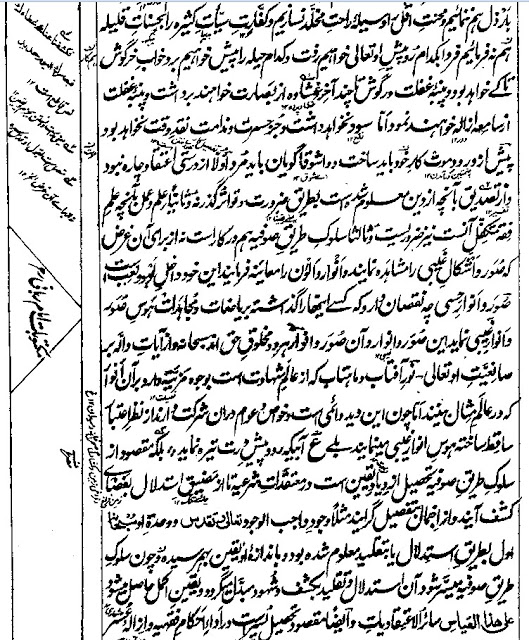 باز دل هم نمانیم ومحنت اقل را وسیلهٔ راحت مخلد نسازیم وکفارت سیئات کثیره را بحسنات قلیله
هم نه فرمائیم فردا بکدام رو پیش او تعالی خواهیم رفت وکدام حیله را پیش خواهیم برد خواب خرگوش
تا کے خواهد بود وپنبهٔ غفلت در گوش تا چند آخر غشاوه از بصارت خواهند برداشت وپنبهٔ غفلت
از سامعه ازاله خواهند نمود اما سود نخواهد داشت وجز حسرت وندامت نقد وقت نخواهد بود
پیش از ورود موت کار خود باید ساخت و واشوقا گویان باید مرد اولا از درستی اعتقاد چاره نبود
واز تصدیق بآنچه از دین معلوم شده است بطریق ضرورت وتواتر گذر نه وثانیا علم وعمل بآنچه علم
فقه متکفل آنست نیز ضروریست وثالثا سلوک طریق صوفیه هم درکار است نه از برای آن غرض
که صور واشکال غیبی را مشاهده نمایند وانوار والوان را معاینه فرمایند این خود داخل لهو ولعب است
صور وانوار حسی چه نقصان دارد که کسے اینها را گذاشته بریاضات ومجاهدات هوس صور
وانوار غیبی نماید این صور وانوار وآن صور وانوار هر دو مخلوق حق اند سبحانه واز آیات داله بر
صانعیت او تعالی نور آفتاب وماهتاب که از عالم شهادت است بوجوه مزیت دارد بر آن انوار
که در عالم مثال بینند اما چون این دید دائمی است وخواص وعوام دران شرکت دارند از نظر اعتبار
ساقط ساخته هوس انوار غیبی مینمایند بلے ع آبیکه رود پیش درت تیره نماید بلکه مقصود از
سلوک طریق صوفیه تحصیل ازدیاد یقین است در معتقدات شرعیه تا از مضیق استدلال بفضای
کشف آیند واز اجمال بتفصیل گرایند مثلا وجود واجب الوجود تعالی وتقدس ووحدت او سبحانه
اول بطریق استدلال یا بتقلید معلوم شده بود وباندازهٔ او یقین بهم رسیده وچون سلوک
طریق صوفیه میسر شود آن استدلال وتقلید بکشف وشهود مبدل گردد ویقین اکمل حاصل شود
علی هذا القیاس سائر الاعتقادیات وایضا مقصود تحصیل یسر است در ادای احکام فقهیه وازالهٔ عسر
مکتوبات امام ربانی رح